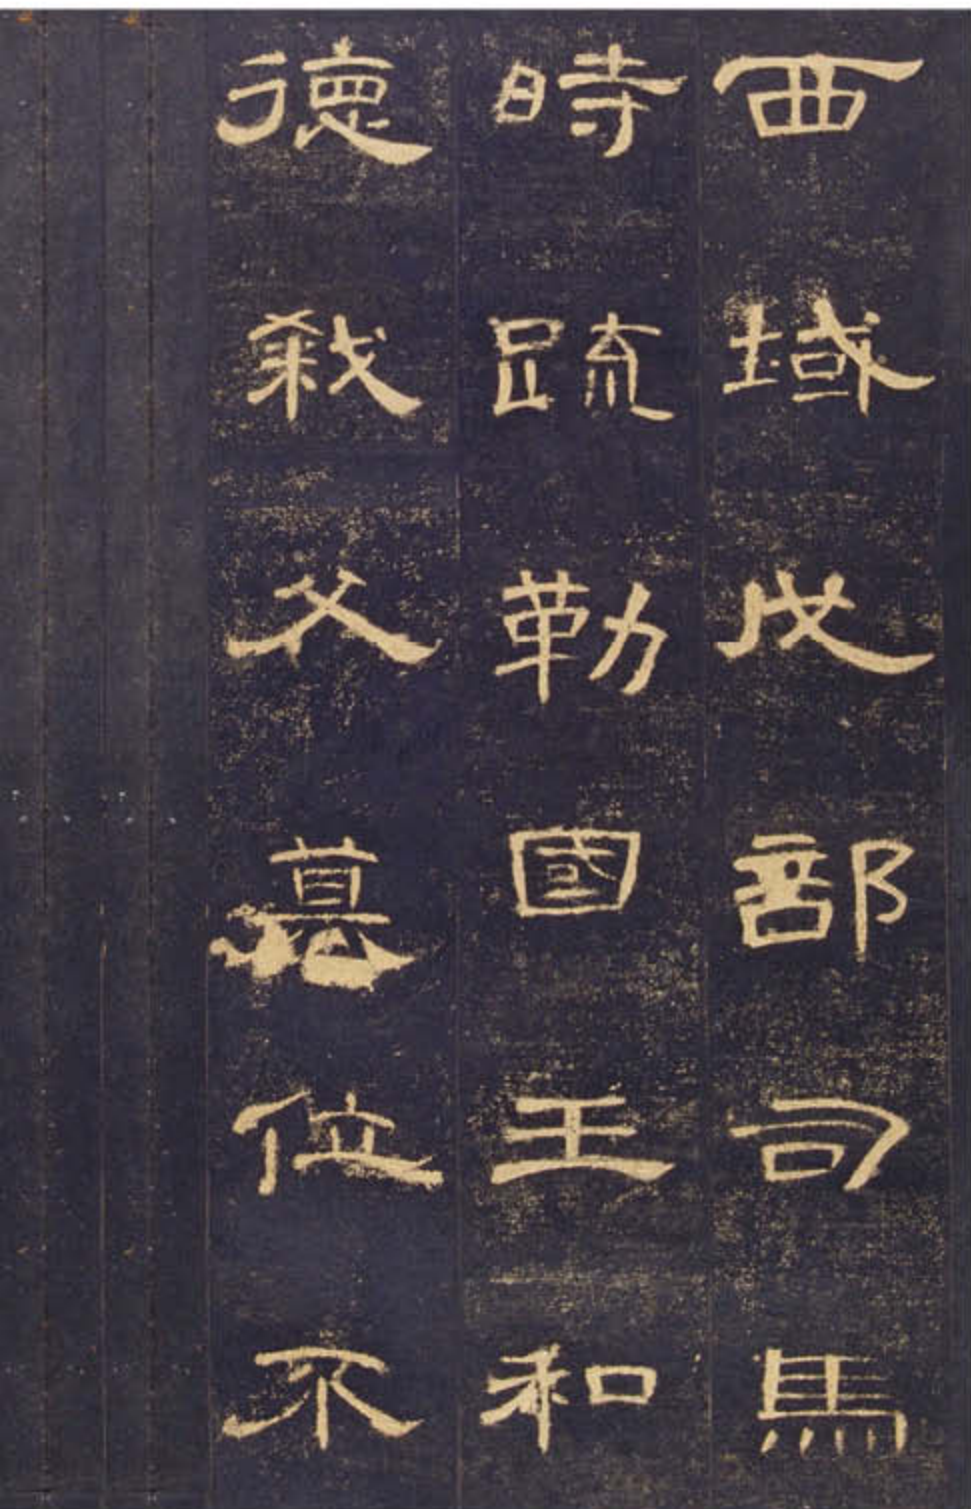 西域戊部司馬
時疏勒國王和
德弑父篡位不